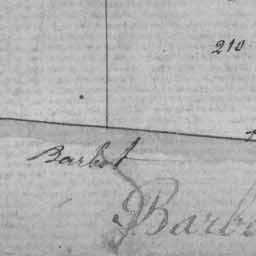 210
Barbot
Barbo